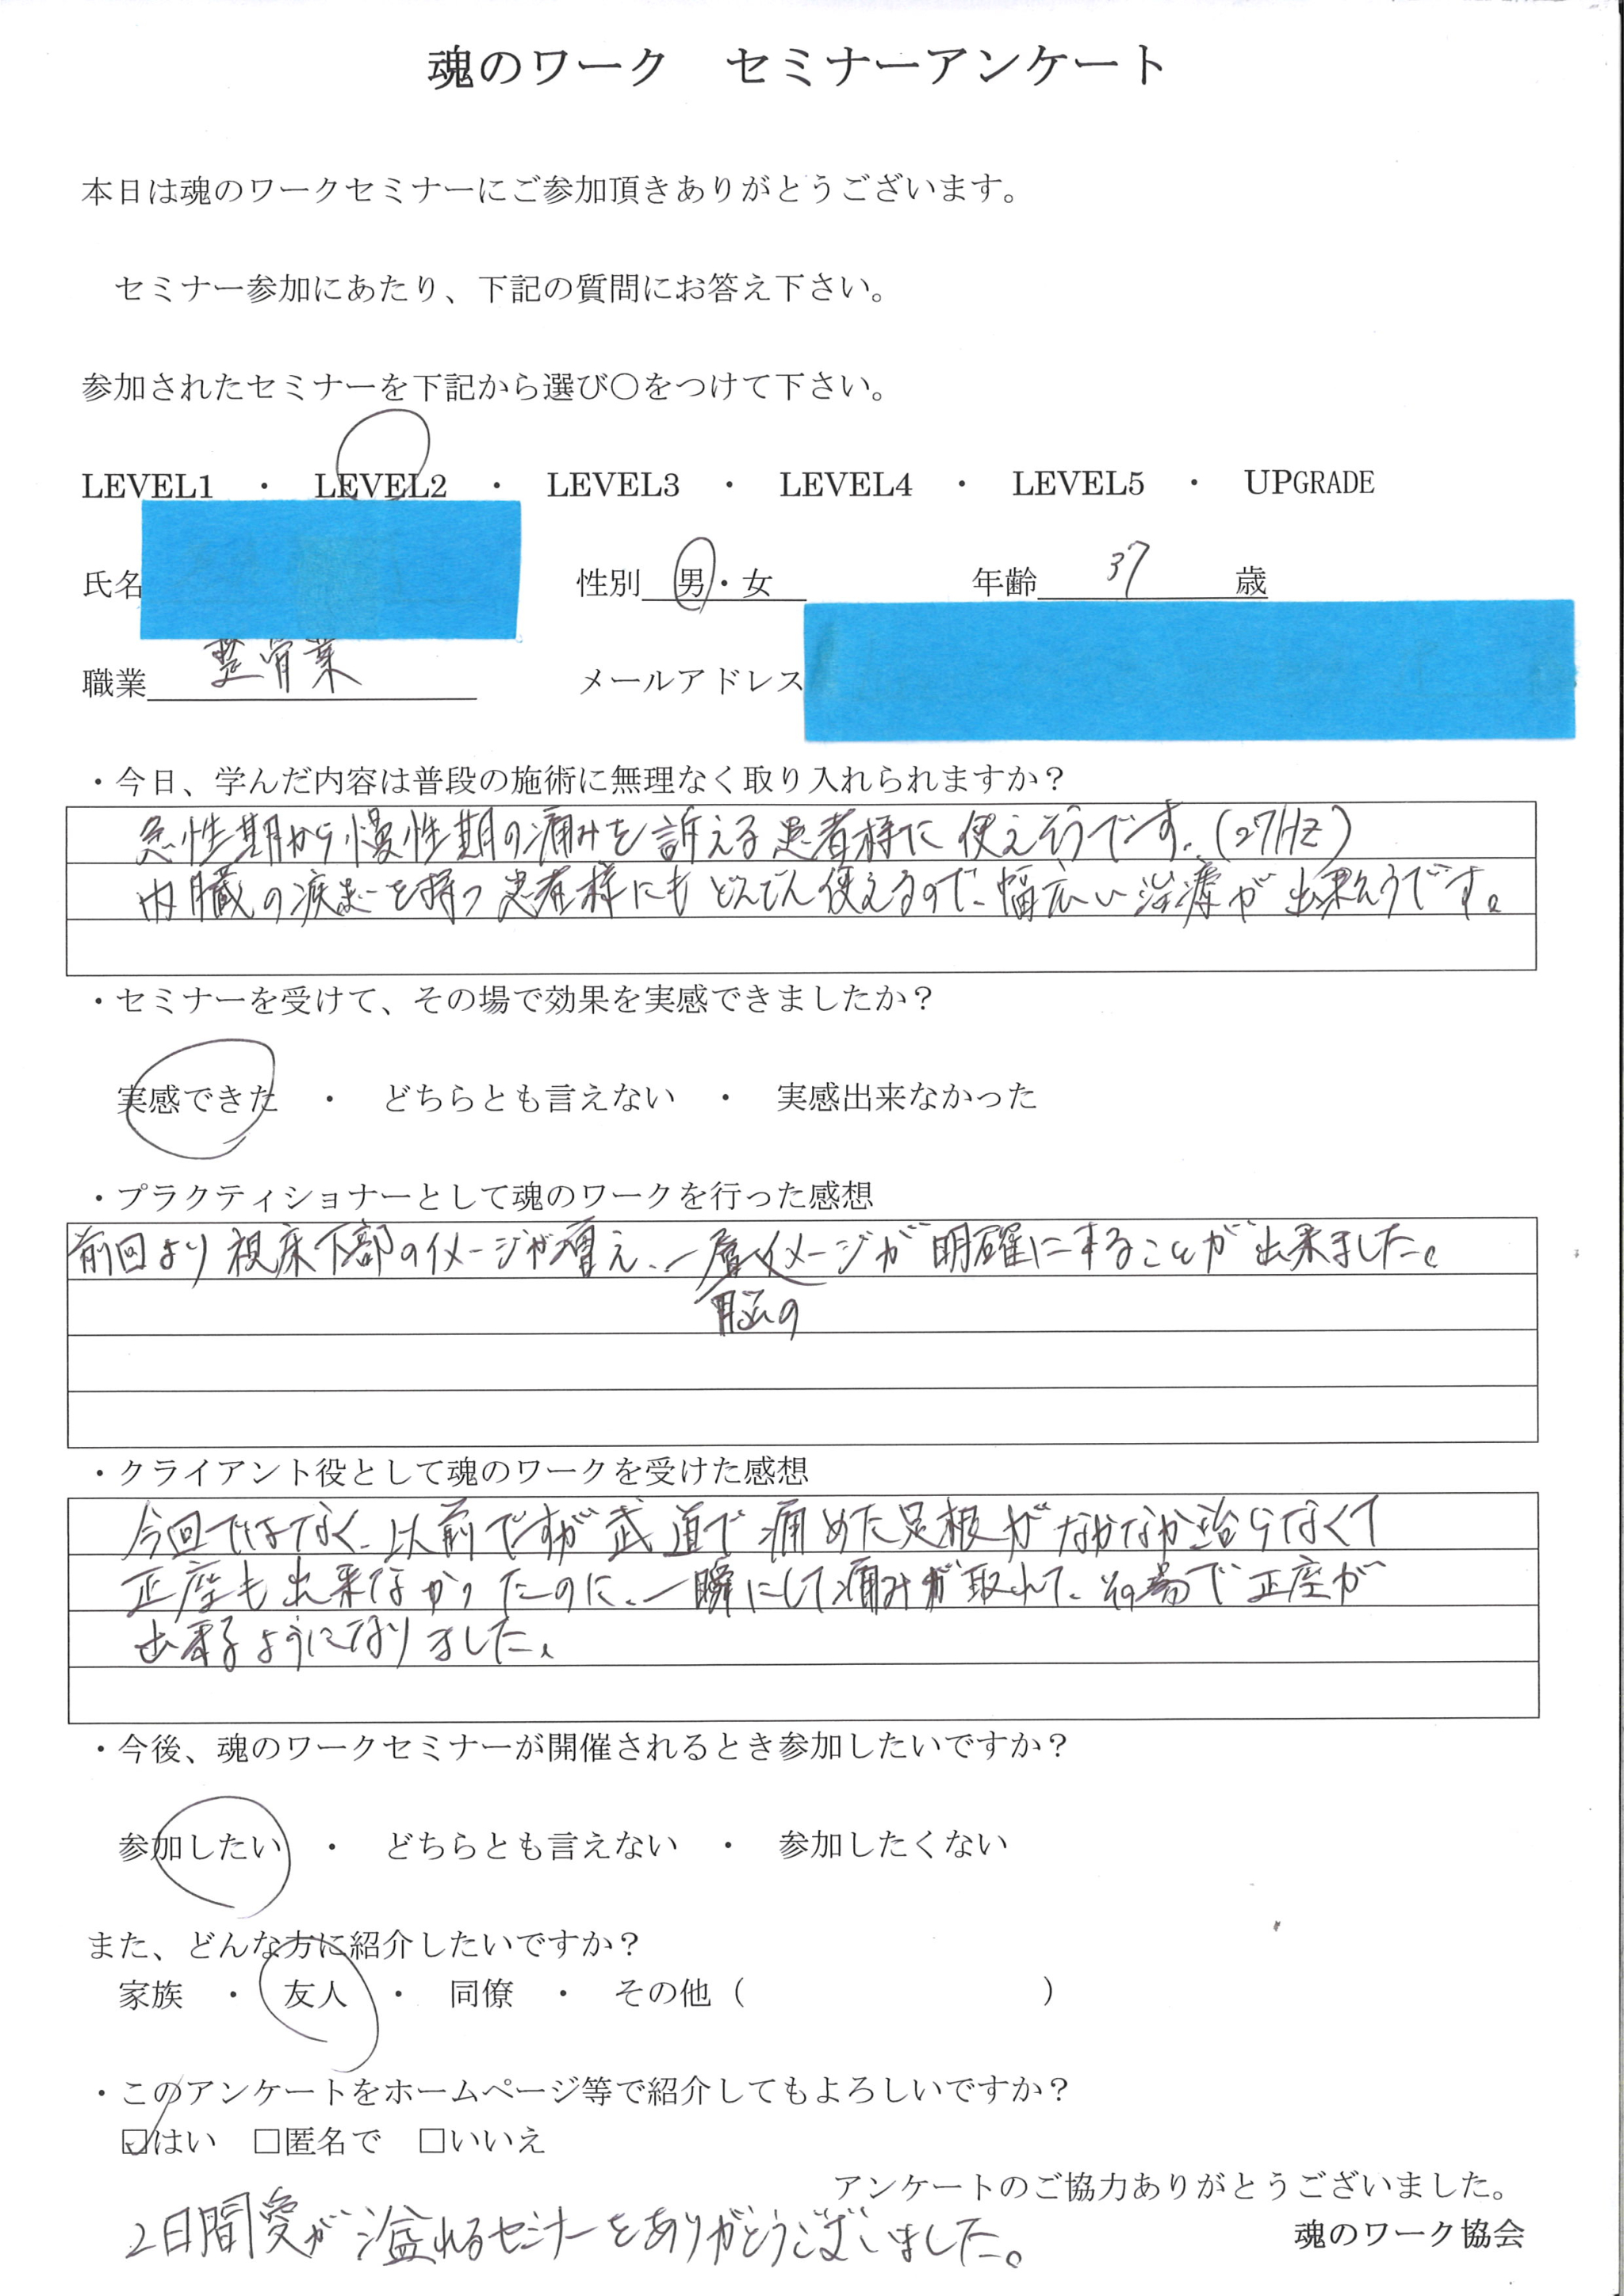 魂のワーク　セミナーアンケート
本日は魂のワークセミナーにご参加頂きありがとうございます。
セミナー参加にあたり、下記の質問にお答え下さい。
参加されたセミナーを下記から選び〇をつけて下さい。
LEVEL1　・　LEVEL2　・　LEVEL3　・　LEVEL4　・　LEVEL5　・　UPGRADE
氏名　性別　男・女　年齢　37　歳
職業　整骨業　メールアドレス
・今日、学んだ内容は普段の施術に無理なく取り入れられますか？
急性期から慢性期の痛みを訴える患者様に使えそうです。(27Hz)
内臓の疾患を持つ患者様にもどんどん使えるので幅広い治療が出来そうです。
・セミナーを受けて、その場で効果を実感できましたか？
実感できた　・　どちらとも言えない　・　実感出来なかった
・プラクティショナーとして魂のワークを行った感想
前回より視床下部のイメージが増え、一層イメージが明確にすることが出来ました。
脳の
・クライアント役として魂のワークを受けた感想
今回ではなく、以前ですが武道で痛めた足根がなかなか治らなくて
正座も出来なかったのに、一瞬にして痛みが取れて、その場で正座が
出来るようになりました。
・今後、魂のワークセミナーが開催されるとき参加したいですか？
参加したい　・　どちらとも言えない　・　参加したくない
また、どんな方に紹介したいですか？
家族　・　友人　・　同僚　・　その他（　　　　　　　　　）
・このアンケートをホームページ等で紹介してもよろしいですか？
☑はい　□匿名で　□いいえ
アンケートのご協力ありがとうございました。
2日間愛が溢れるセミナーをありがとうございました。
魂のワーク協会